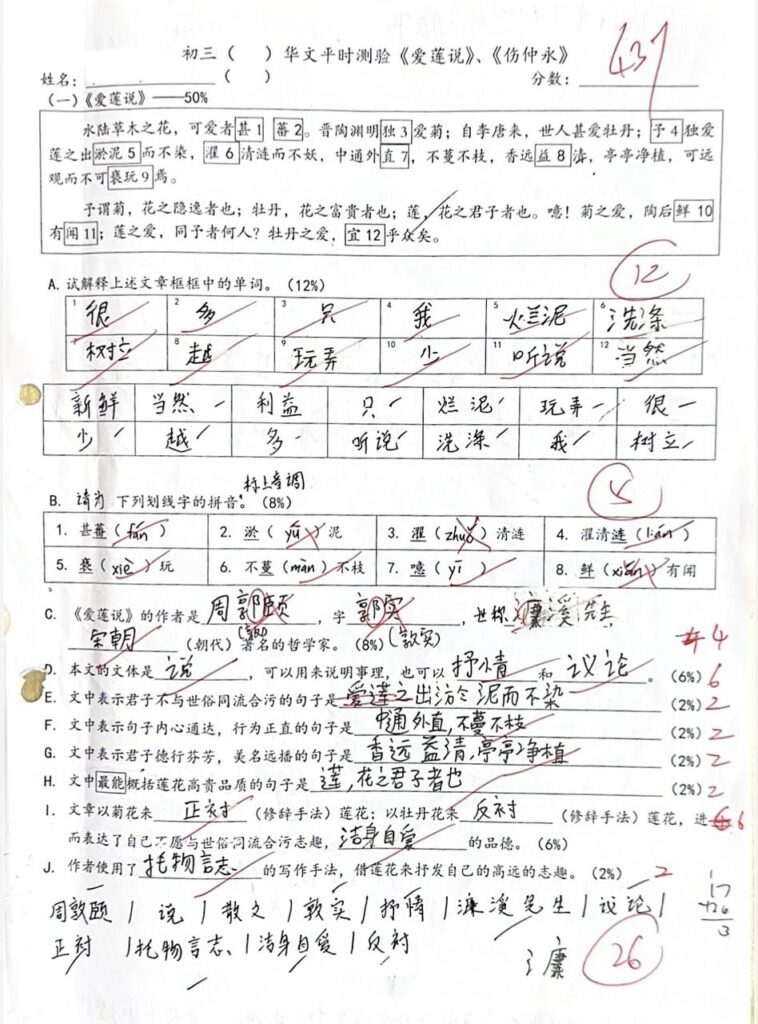 初三（ ）华文平时测验《爱莲说》、《伤仲永》
437
姓名：（ ） 分数：
（一）《爱莲说》——50%
水陆草木之花，可爱者甚1 蕃2。晋陶渊明独3爱菊；自李唐来，世人甚爱牡丹；予4独爱
莲之出淤泥5而不染，濯6清涟而不妖，中通外直7，不蔓不枝，香远益8清，亭亭净植，可远
观而不可亵玩9焉。
予谓菊，花之隐逸者也；牡丹，花之富贵者也；莲，花之君子者也。噫！菊之爱，陶后鲜10
有闻11；莲之爱，同予者何人？牡丹之爱，宜12乎众矣。
A. 试解释上述文章框框中的单词。（12%） 12
1 很 2 多 3 只 4 我 5 烂泥 6 洗涤
7 树立 8 越 9 玩弄 10 少 11 听说 12 当然
新鲜 当然 利益 只 烂泥 玩弄 很
少 越 多 听说 洗涤 我 树立
标上音调
B. 请为下列划线字的拼音。（8%） 5
1. 甚蕃（fán） 2. 淤（yū）泥 3. 濯（zhuó）清涟 4. 濯清涟（lián）
5. 亵（xiè）玩 6. 不蔓（màn）不枝 7. 噫（yī） 8. 鲜（xiǎn）有闻
C. 《爱莲说》的作者是 周郭颐，字 郭实，世称濂溪先生
宋朝（朝代）著名的哲学家。（8%）（敦实） 4
D. 本文的文体是 说，可以用来说明事理，也可以 抒情 和 议论。（6%） 6
E. 文中表示君子不与世俗同流合污的句子是 爱莲之出淤泥而不染（2%） 2
F. 文中表示句子内心通达，行为正直的句子是 中通外直,不蔓不枝（2%） 2
G. 文中表示君子德行芬芳，美名远播的句子是 香远益清,亭亭净植（2%） 2
H. 文中最能概括莲花高贵品质的句子是 莲,花之君子者也（2%） 2
I. 文章以菊花来 正衬（修辞手法）莲花；以牡丹花来 反衬（修辞手法）莲花，进 6
而表达了自己不愿与世俗同流合污志趣，洁身自爱 的品德。（6%）
J. 作者使用了 托物言志 的写作手法，借莲花来抒发自己的高远的志趣。（2%） 2
周敦颐 | 说 | 散文 | 敦实 | 抒情 | 濂溪先生 | 议论 |
正衬 | 托物言志、| 洁身自爱 | 反衬
26